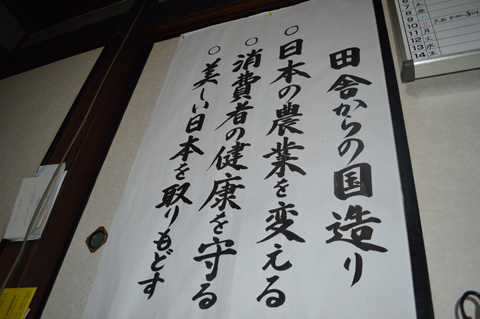 田舎からの国造り
○日本の農業を変える
○消費者の健康を守る
○美しい日本を取りもどす
8 月
9 火
10
11
12 月
13 火
14 水